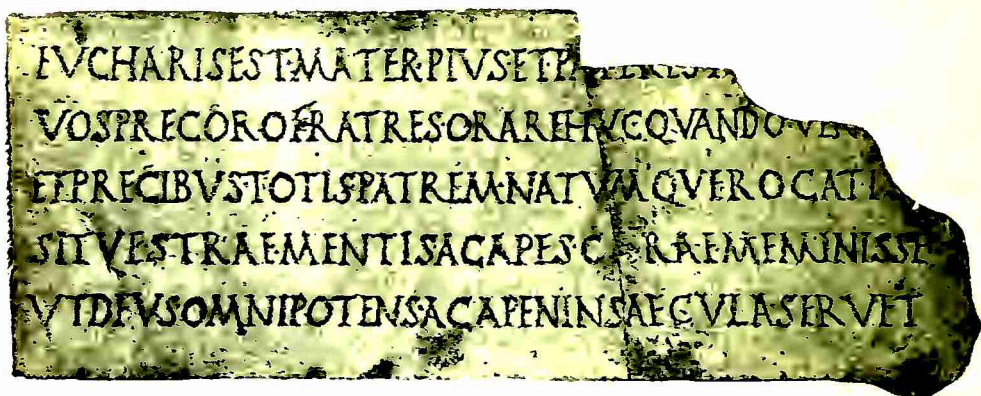 EVCHARISEST·MATER·PIVS·ET·PATER EST
VOSPRECOROFRATRES·ORAREHVCQVANDO
ETPRECIBVSTOTIS·PATREM·NATVMQVEROGATI
SITVESTRAE·MENTISACAPESCARAEMEMINISSE
VTDEVSOMNIPOTENSACAPENINSAECVLASERVET